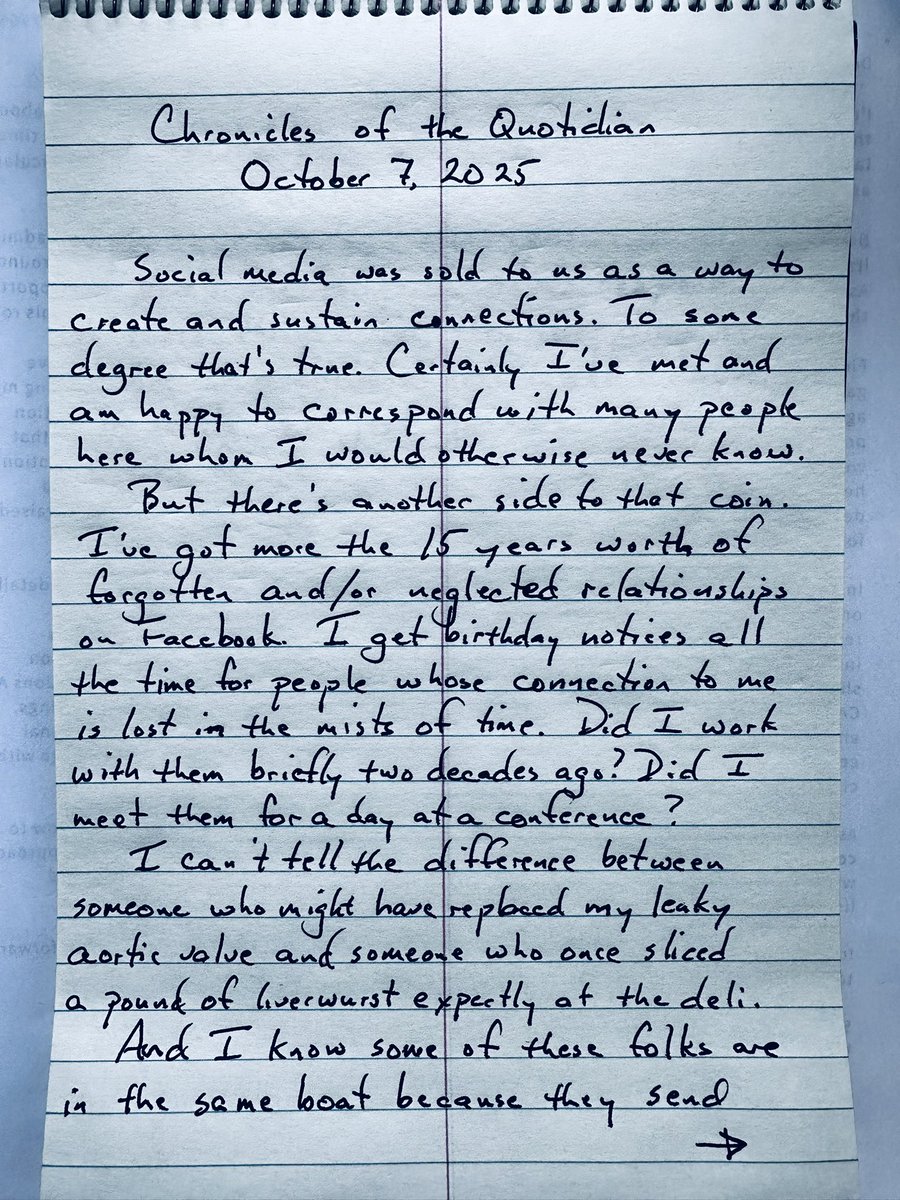 Chronicles of the Quotidian
October 7, 2025
Social media was sold to us as a way to
create and sustain connections. To some
degree that's true. Certainly I've met and
am happy to correspond with many people
here whom I would otherwise never know.
But there's another side to that coin.
I've got more the 15 years worth of
forgotten and/or neglected relationships
on Facebook. I get birthday notices all
the time for people whose connection to me
is lost in the mists of time. Did I work
with them briefly two decades ago? Did I
meet them for a day at a conference?
I can't tell the difference between
someone who might have replaced my leaky
aortic valve and someone who once sliced
a pound of liverwurst expertly at the deli.
And I know some of these folks are
in the same boat because they send
→